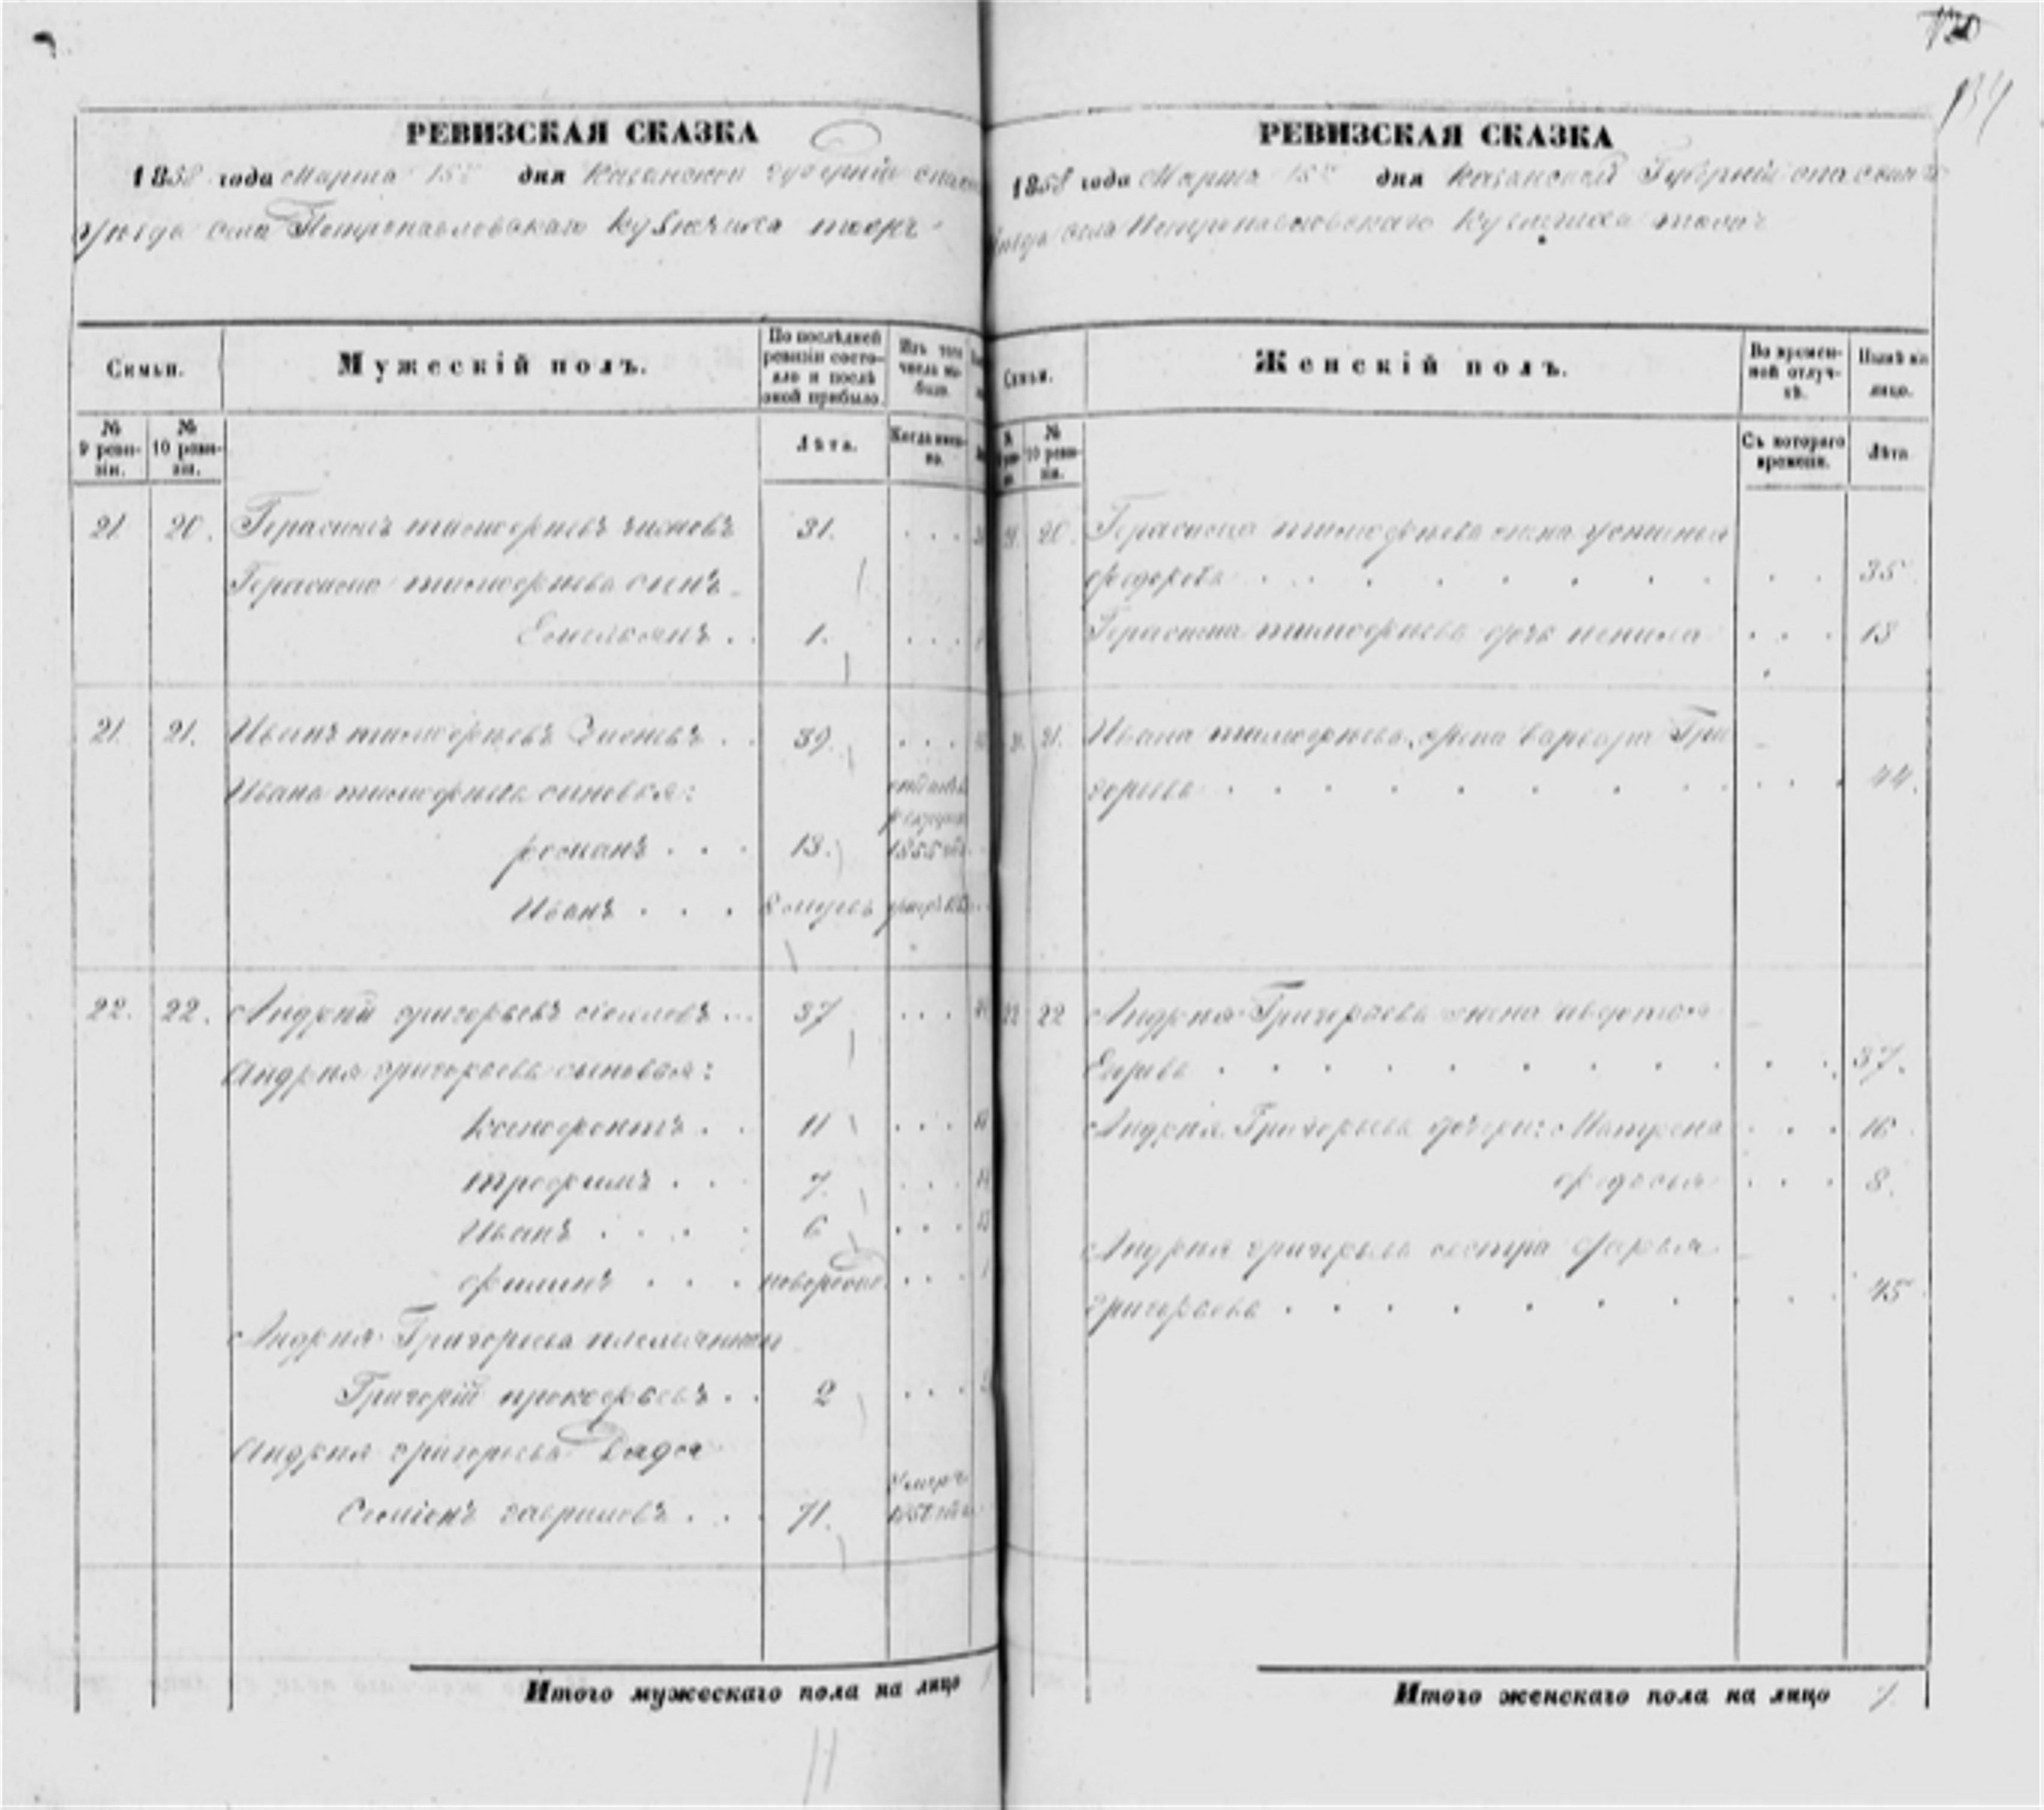 120
134
РЕВИЗСКАЯ СКАЗКА
1858 года Марта 15го дня Казанской губерніи
уѣзда села Петропавловскаго Кузнечиха тожъ
Семьи.
Мужескій полъ.
По послѣдней ревизіи состояло и послѣ оной прибыло.
Изъ того числа выбыло.
№ 9 ревизіи.
№ 10 ревизіи.
Лѣта.
Когда именно.
21 20. Герасимъ тимофеевъ 31. . . .
Герасима тимофеева сынъ
Емельянъ . . 1. . . .
21. 21. Иванъ тимофеевъ . . 39. . . .
Ивана тимофеева сыновья:
романъ . . . 13. отданъ въ рекруты 1855
Иванъ . . . умеръ
22. 22. Андрей григорьевъ . . . 37 . . .
Андрея григорьева сыновья:
ксенофонтъ . . 11 . . .
трофимъ . . . 7. . . .
Иванъ . . . . 6 . . .
филипъ . . . новорожд. . . .
Андрея Григорьева племянникъ
Григорій прокофьевъ . . 2 . . .
Андрея григорьева дядя
Семіонъ гавриловъ . . . 71. Умеръ
Итого мужескаго пола на лицо
11
РЕВИЗСКАЯ СКАЗКА
1858 года Марта 15го дня Казанской Губерніи спаскаго
уѣзда села Петропавловскаго Кузнечиха тожъ
Семьи.
Женскій полъ.
Во временной отлучкѣ.
Нынѣ на лицо.
№ 10 ревизіи.
Съ котораго времени.
Лѣта
21. 20. Герасима тимофеева жена устинья
федорова . . . . . . . . . 35
Герасима тимофеева дочь . . . 13
21. 21. Ивана тимофеева жена варвара Гри
горьева . . . . . . . . . . 44.
22 22 Андрея Григорьева жена авдотья
Егорова . . . . . . . . . . 37.
Андрея Григорьева дочери: Матрена . . . 16
федосья . . . 8.
Андрея григорьева сестра дарья
григорьева . . . . . . . . . 45
Итого женскаго пола на лицо 7.